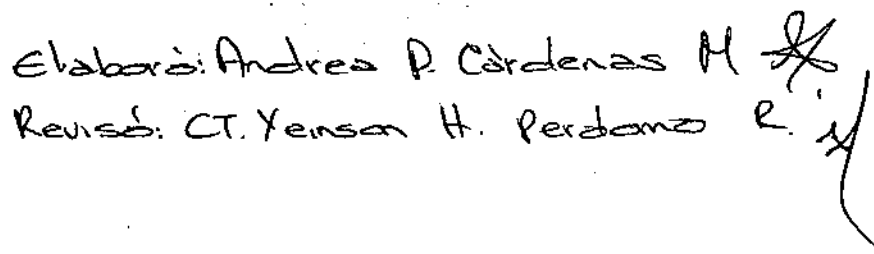 Elaboró: Andrea P. Cárdenas M
Revisó: CT. Yeinson H. Perdomo R.